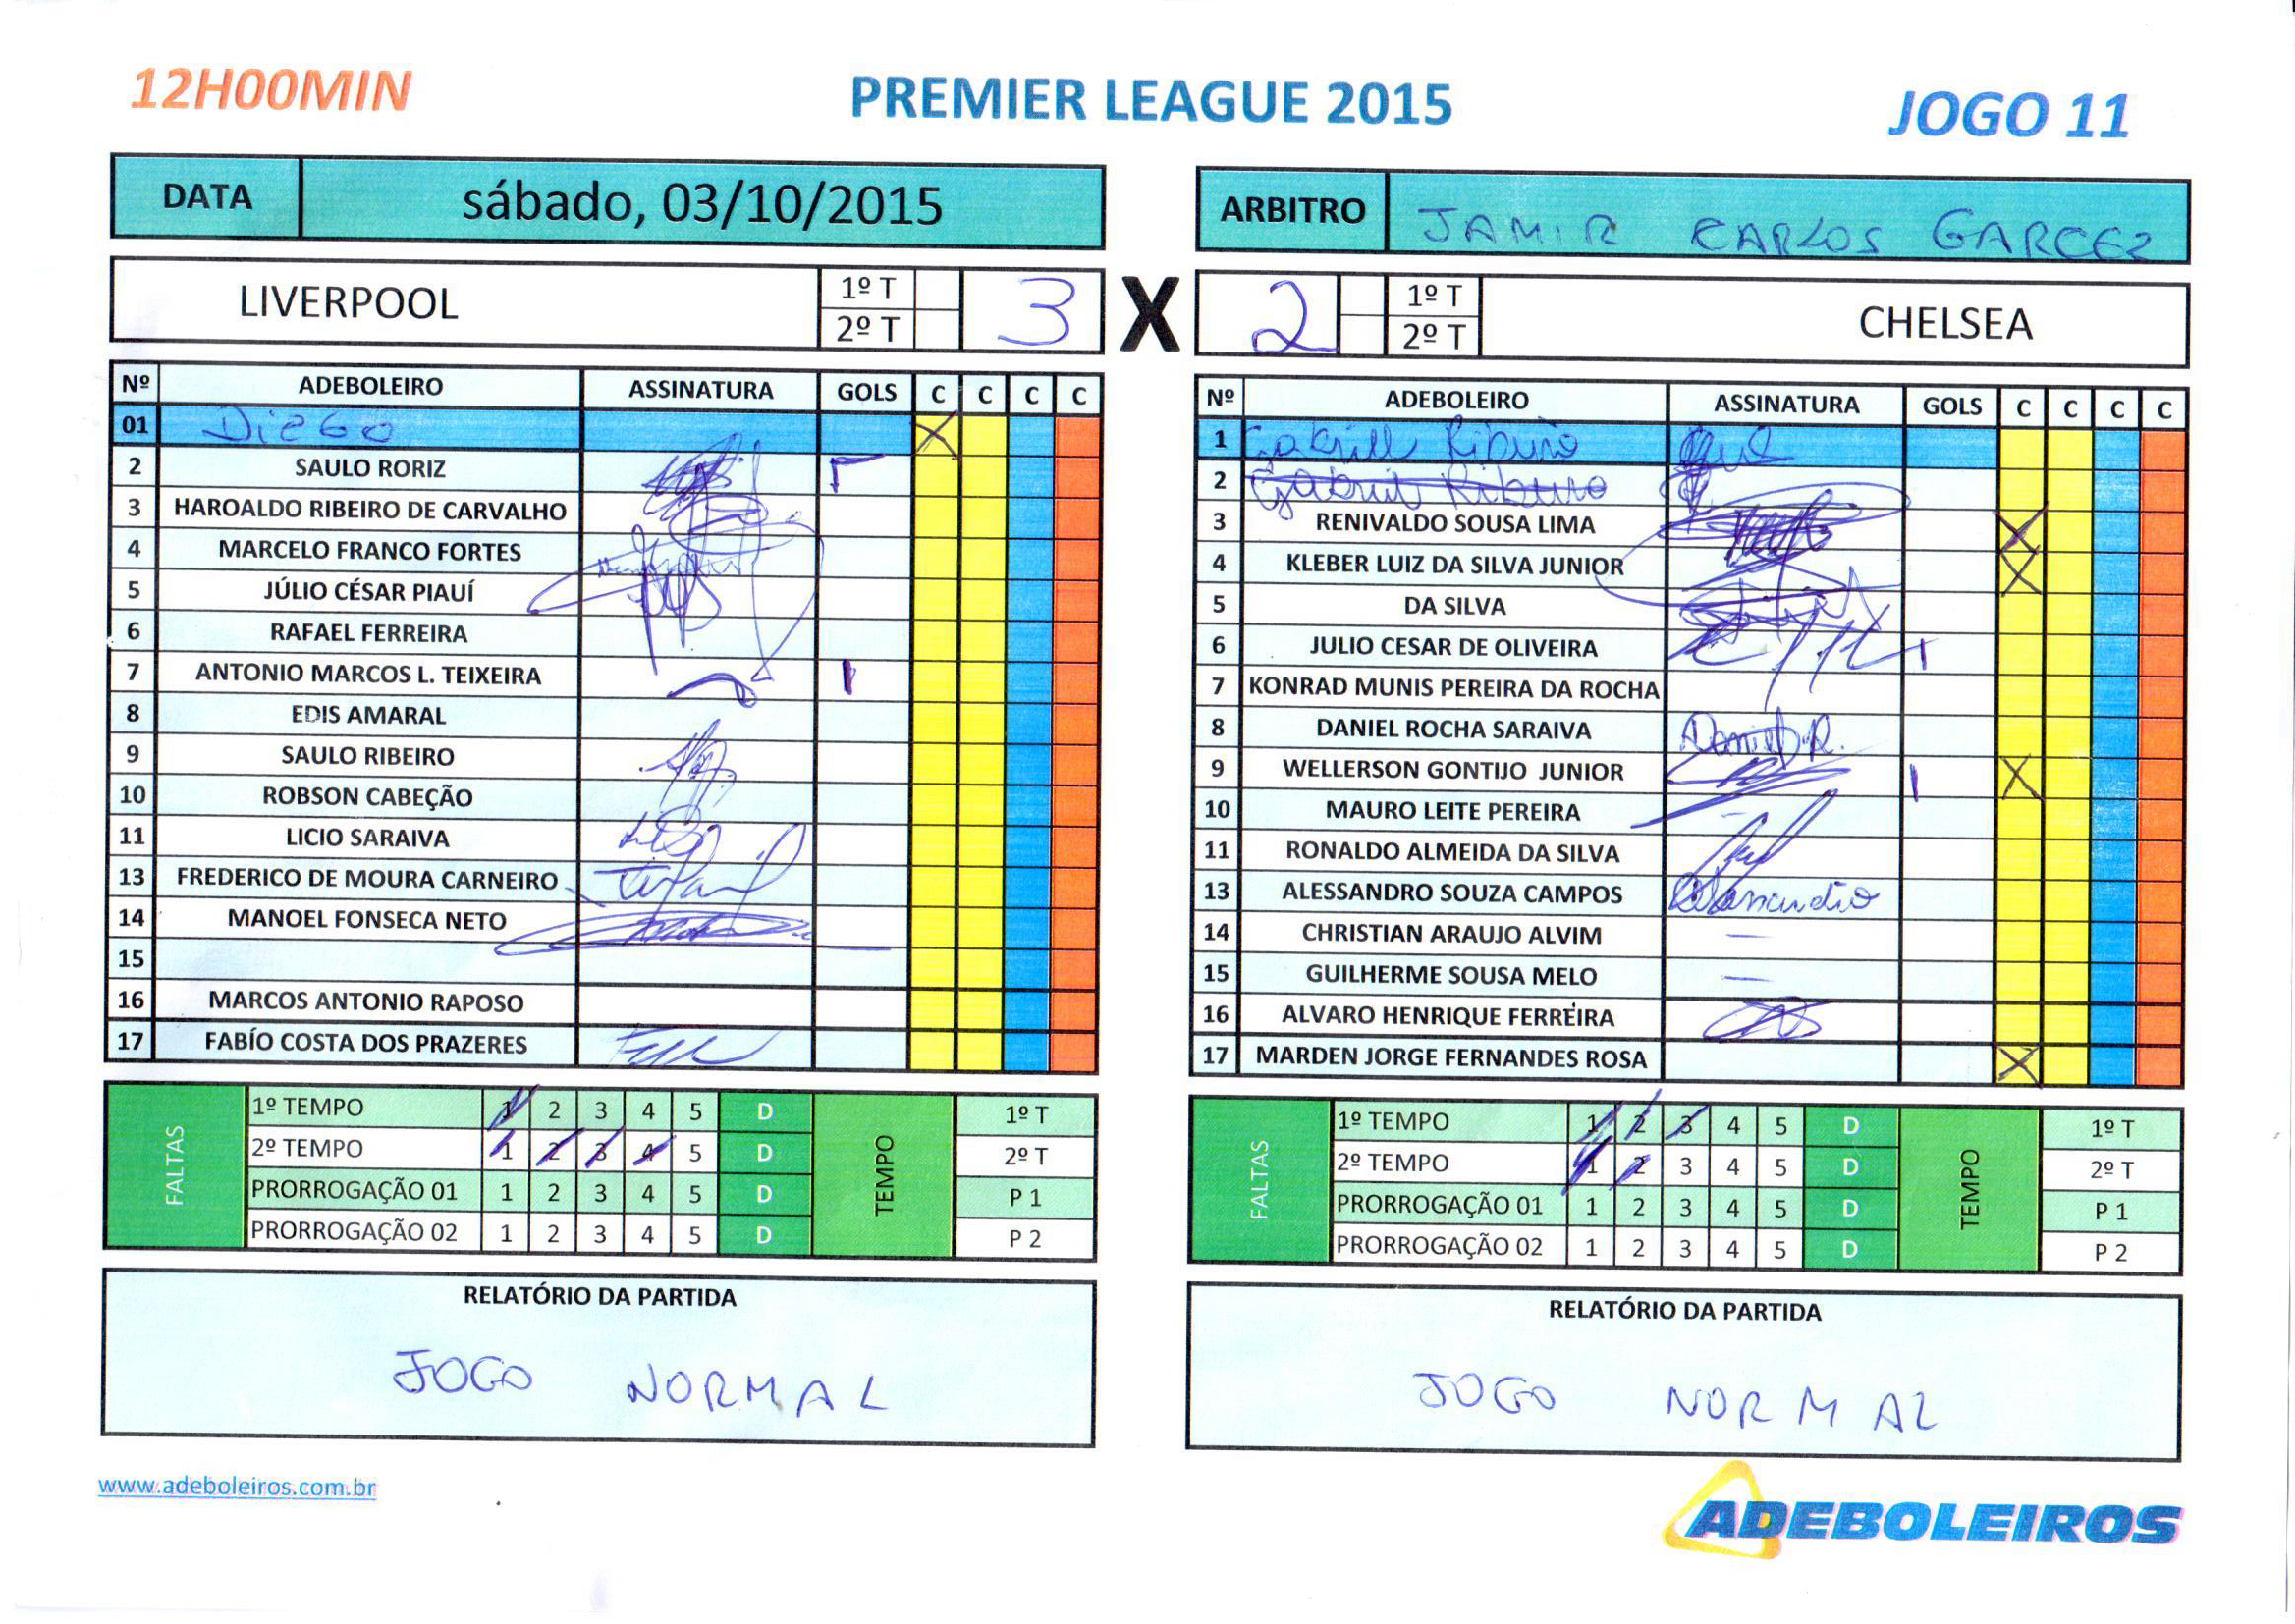 12H00MIN PREMIER LEAGUE 2015 JOGO 11
DATA sábado, 03/10/2015 ARBITRO JAMIR CARLOS GARCEZ
LIVERPOOL 1º T 2º T 3 X 2 1º T 2º T CHELSEA
Nº ADEBOLEIRO ASSINATURA GOLS C C C C
01 DIEGO
2 SAULO RORIZ
3 HAROALDO RIBEIRO DE CARVALHO
4 MARCELO FRANCO FORTES
5 JÚLIO CÉSAR PIAUÍ
6 RAFAEL FERREIRA
7 ANTONIO MARCOS L. TEIXEIRA
8 EDIS AMARAL
9 SAULO RIBEIRO
10 ROBSON CABEÇÃO
11 LICIO SARAIVA
13 FREDERICO DE MOURA CARNEIRO
14 MANOEL FONSECA NETO
15
16 MARCOS ANTONIO RAPOSO
17 FABÍO COSTA DOS PRAZERES
FALTAS
1º TEMPO 1 2 3 4 5 D
2º TEMPO 1 2 3 4 5 D
PRORROGAÇÃO 01 1 2 3 4 5 D
PRORROGAÇÃO 02 1 2 3 4 5 D
TEMPO
1º T
2º T
P 1
P 2
RELATÓRIO DA PARTIDA
JOGO NORMAL
Nº ADEBOLEIRO ASSINATURA GOLS C C C C
1 Gabriell Ribeiro
2 Gabriel Ribeiro
3 RENIVALDO SOUSA LIMA
4 KLEBER LUIZ DA SILVA JUNIOR
5 DA SILVA
6 JULIO CESAR DE OLIVEIRA
7 KONRAD MUNIS PEREIRA DA ROCHA
8 DANIEL ROCHA SARAIVA Daniel R.
9 WELLERSON GONTIJO JUNIOR
10 MAURO LEITE PEREIRA
11 RONALDO ALMEIDA DA SILVA
13 ALESSANDRO SOUZA CAMPOS Alessandro
14 CHRISTIAN ARAUJO ALVIM
15 GUILHERME SOUSA MELO
16 ALVARO HENRIQUE FERREIRA
17 MARDEN JORGE FERNANDES ROSA
FALTAS
1º TEMPO 1 2 3 4 5 D
2º TEMPO 1 2 3 4 5 D
PRORROGAÇÃO 01 1 2 3 4 5 D
PRORROGAÇÃO 02 1 2 3 4 5 D
TEMPO
1º T
2º T
P 1
P 2
RELATÓRIO DA PARTIDA
JOGO NORMAL
www.adeboleiros.com.br
ADEBOLEIROS